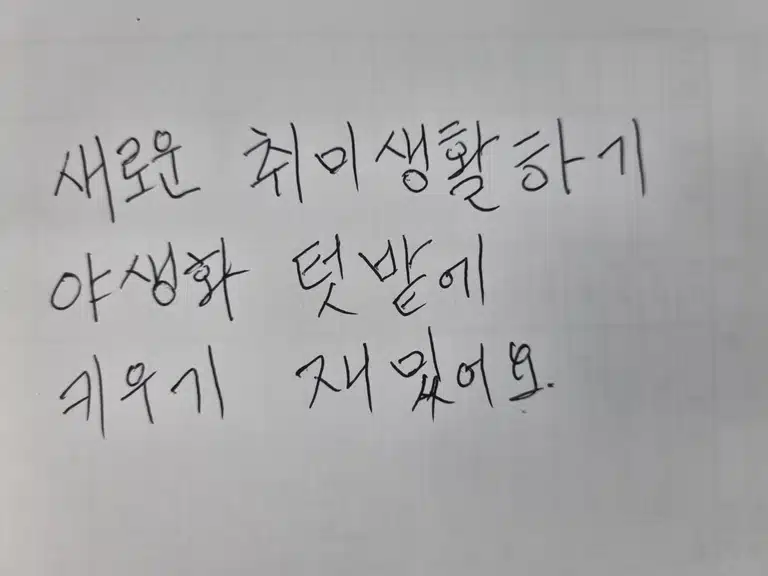 새로운 취미생활하기
야생화 텃밭에
키우기 재밌어요.